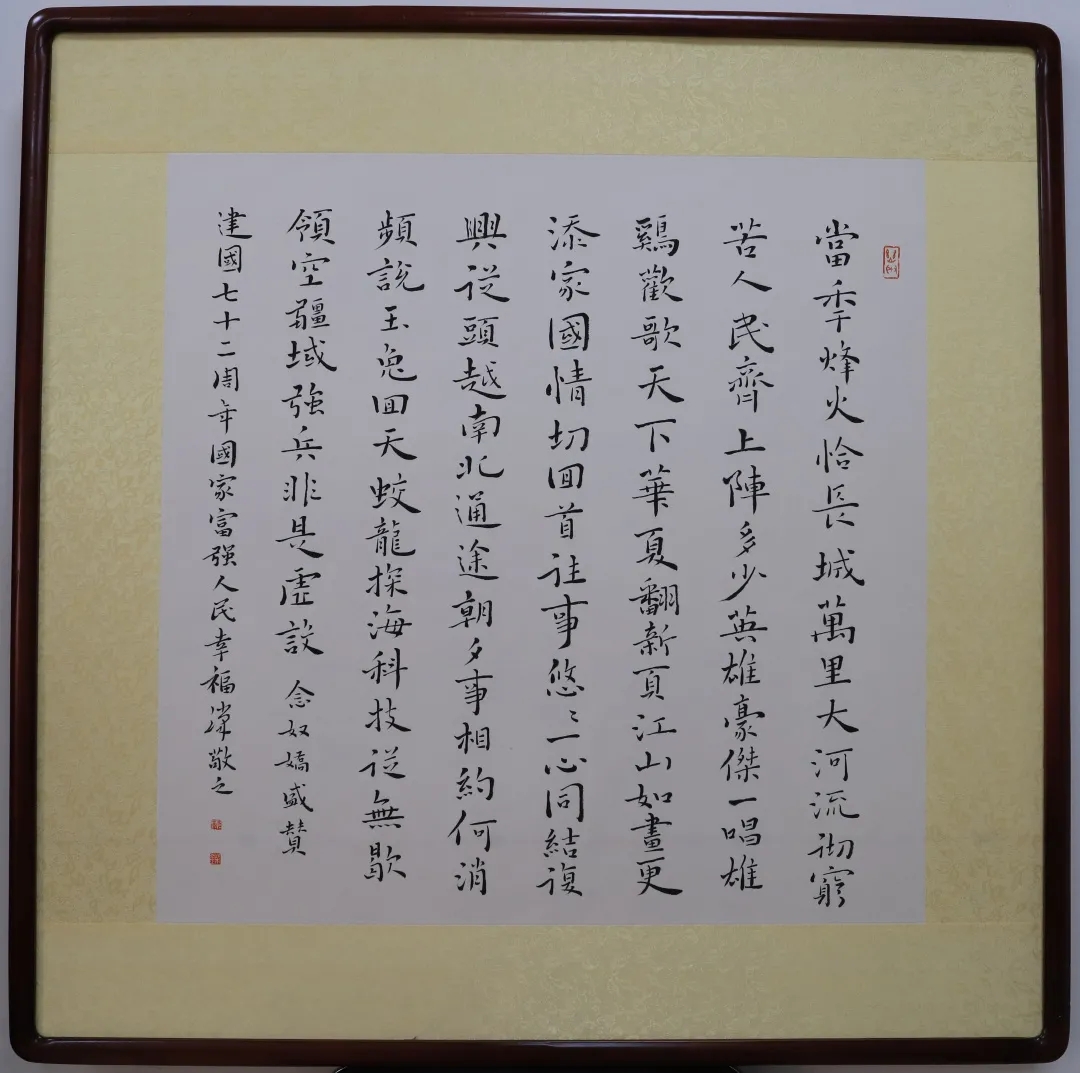 當年烽火恰長城萬里大河流沏窮
苦人民齊上陣多少英雄豪傑一唱雄
鷄歡歌天下華夏翻新頁江山如畫更
添家國情切回首往事悠〻一心同結復
興從頭越南北通途朝夕事相約何消
頻說玉兔回天蛟龍探海科技從無歇
領空疆域強兵非是虛設 念奴嬌盛贊
建國七十二周年國家富強人民幸福 敬之